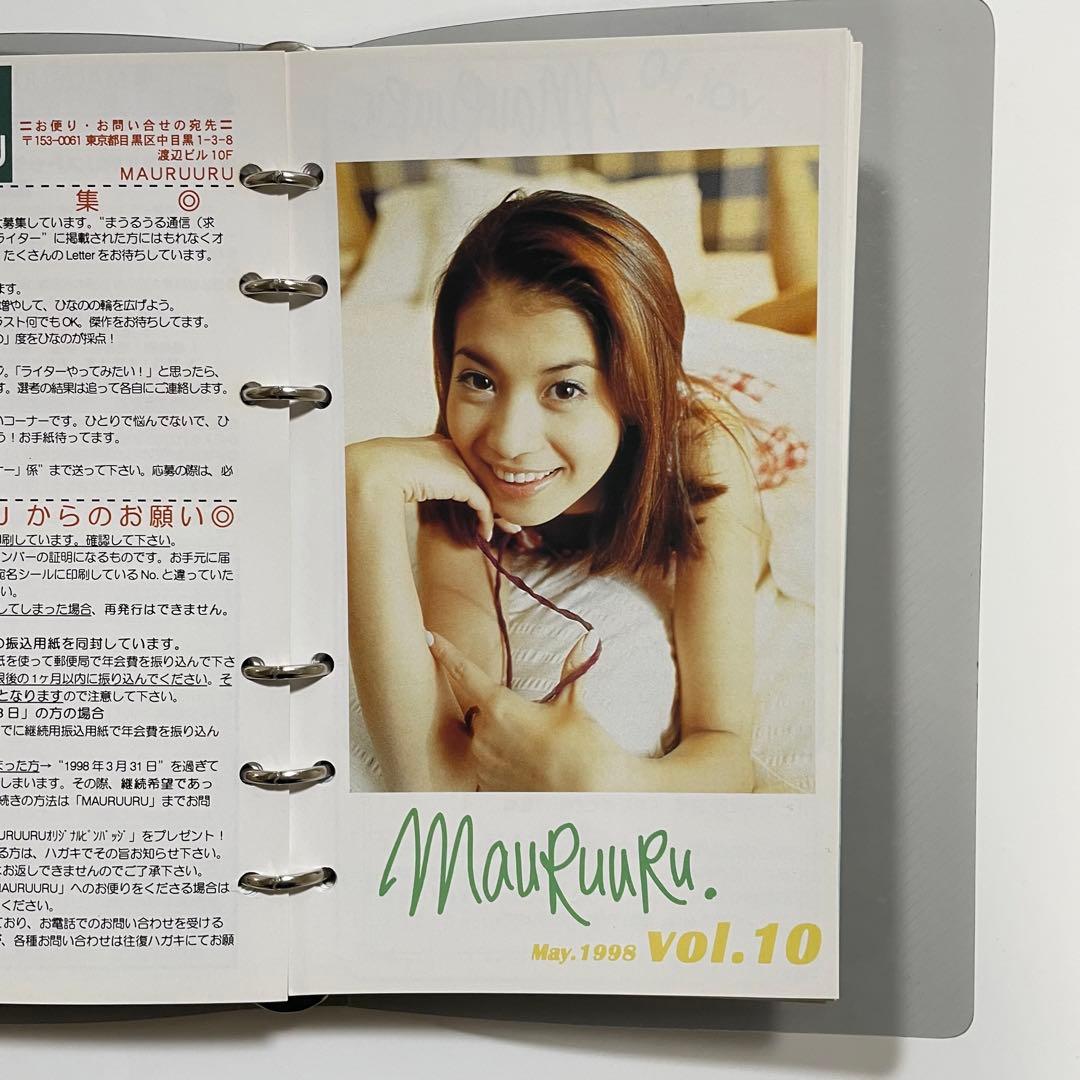 〓お便り・お問い合せの宛先〓
〒153-0061 東京都目黒区中目黒1-3-8
渡辺ビル10F
MAURUURU
集 ◎
募集しています。“まうるうる通信（求
ライター”に掲載された方にはもれなくオ
たくさんのLetterをお待ちしています。
ます。
増やして、ひなのの輪を広げよう。
ラスト何でもOK。傑作をお待ちしてます。
の」度をひなのが採点！
。「ライターやってみたい！」と思ったら、
す。選考の結果は追って各自にご連絡します。
いコーナーです。ひとりで悩んでないで、ひ
う！お手紙待ってます。
ナー」係”まで送って下さい。応募の際は、必
U からのお願い◎
印刷しています。確認して下さい。
ンバーの証明になるものです。お手元に届
宛名シールに印刷しているNo.と違っていた
い。
してしまった場合、再発行はできません。
の振込用紙を同封しています。
紙を使って郵便局で年会費を振り込んで下さ
限後の1ヶ月以内に振り込んでください。そ
となりますので注意して下さい。
日」の方の場合
でに継続用振込用紙で年会費を振り込ん
まった方→“1998年3月31日”を過ぎて
しまいます。その際、継続希望であっ
続きの方法は「MAURUURU」までお問
URUURUｵﾘｼﾞﾅﾙﾋﾟﾝﾊﾞｯｼﾞ」をプレゼント！
る方は、ハガキでその旨お知らせ下さい。
お返しできませんのでご了承下さい。
MAURUURU」へのお便りをくださる場合は
ください。
ており、お電話でのお問い合わせを受ける
、各種お問い合わせは往復ハガキにてお願
MauRuuRu.
May.1998 vol.10